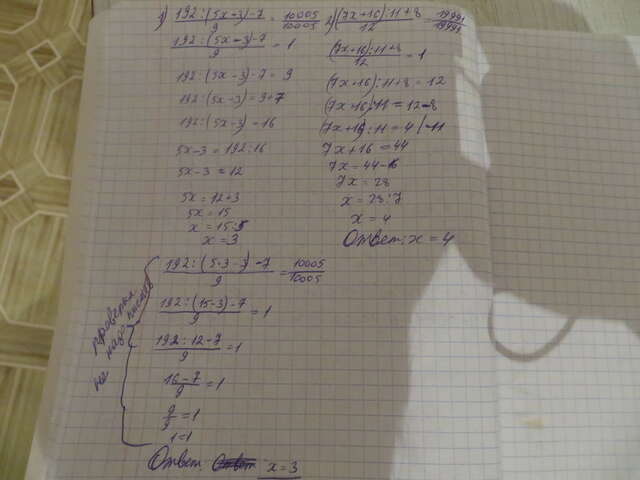 1) (192:(5x-3)-7)/9 = 10005/10005
(192:(5x-3)-7)/9 = 1
192:(5x-3)-7 = 9
192:(5x-3) = 9+7
192:(5x-3) = 16
5x-3 = 192:16
5x-3 = 12
5x = 12+3
5x = 15
x = 15:5
x = 3
(192:(5·3-3)-7)/9 = 10005/10005
(192:(15-3)-7)/9 = 1
(192:12-7)/9 = 1
(16-7)/9 = 1
9/9 = 1
1=1
проверка
не надо писать
Ответ: x = 3
2) ((7x+16):11+8)/12 = 19991/19991
((7x+16):11+8)/12 = 1
(7x+16):11+8 = 12
(7x+16):11 = 12-8
(7x+16):11 = 4 |·11
7x+16 = 44
7x = 44-16
7x = 28
x = 28:7
x = 4
Ответ: x = 4